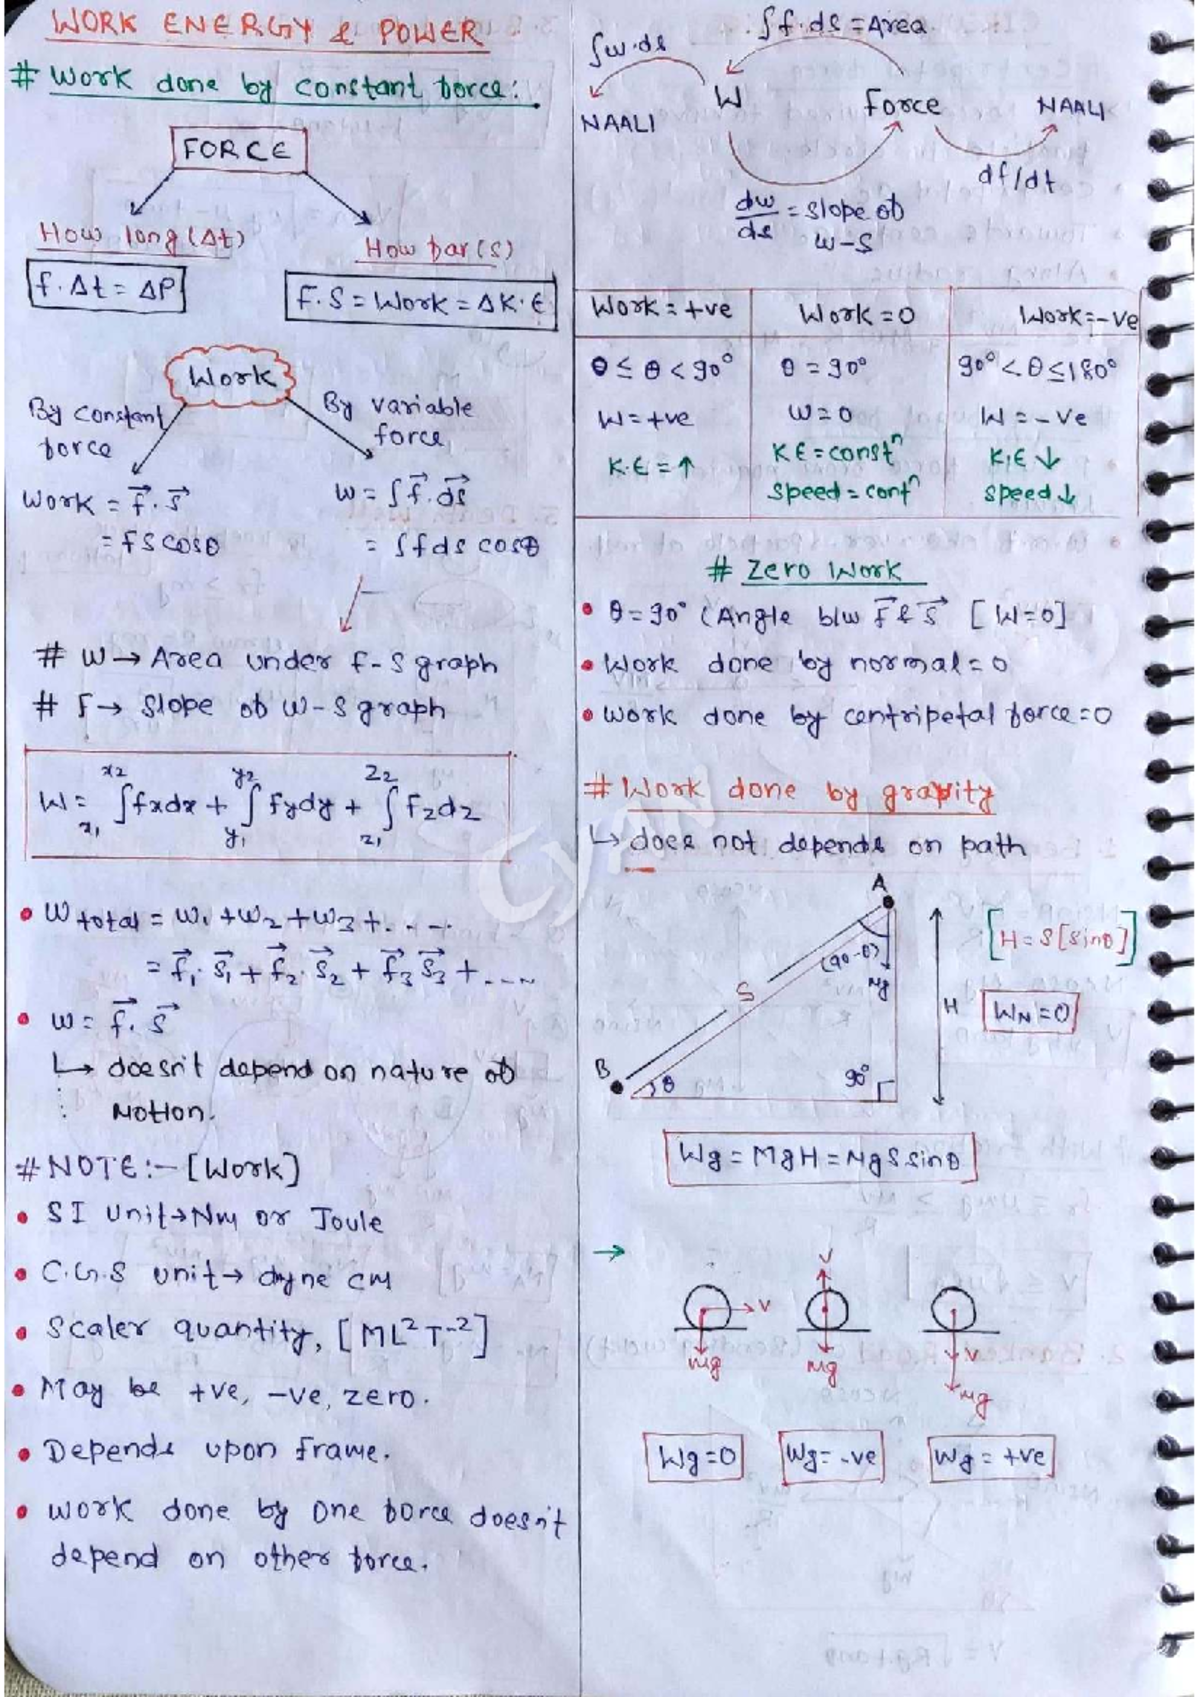 WORK ENERGY & POWER
# Work done by constant force:
FORCE
How long (Δt)
How far (s)
f. Δt = ΔP
F. S = Work = ΔK.E
Work
By constant force
By variable force
Work = f⃗. s⃗
= fs cosθ
W = ∫f⃗. ds⃗
= ∫fds cosθ
# W → Area under f-s graph
# F → Slope of W-s graph
W = x₁∫x2 fxdx + y₁∫y2 fydy + z₁∫z2 Fzdz
• Wtotal = W₁ + W₂ + W3 + . . . .
= f⃗₁. s⃗₁ + f⃗₂. s⃗₂ + f⃗3 s⃗3 + ....
• W = f⃗. s⃗
↳ doesn't depend on nature of
Motion.
# NOTE:- [Work]
• SI unit → Nm or Joule
• C.G.S unit → dyne cm
• Scaler quantity, [ML²T⁻²]
• May be +ve, -ve, zero.
• Depends upon frame.
• Work done by one force doesn't
depend on other force.
∫f.ds = Area
∫w.ds
W
Force
NAALI
NAALI
df/dt
dw/ds = slope of
W-S
Work = +ve Work = 0 Work = -ve
0 ≤ θ < 90° θ = 90° 90° < θ ≤ 180°
W = +ve W = 0 W = -ve
K.E = ↑ KE = constⁿ K.E ↓
Speed = contⁿ speed ↓
# Zero Work
• θ = 90° (Angle b/w F⃗ & S⃗ [W=0]
• Work done by normal = 0
• Work done by centripetal force = 0
# Work done by gravity
↳ does not depends on path
A
[H = S[sinθ]]
(90-θ)
Mg
S
H
WN = 0
B
θ
90°
Wg = MgH = MgS sinθ
→
V
V
V
mg
Mg
mg
Wg = 0
Wg = -ve
Wg = +ve
CYAN